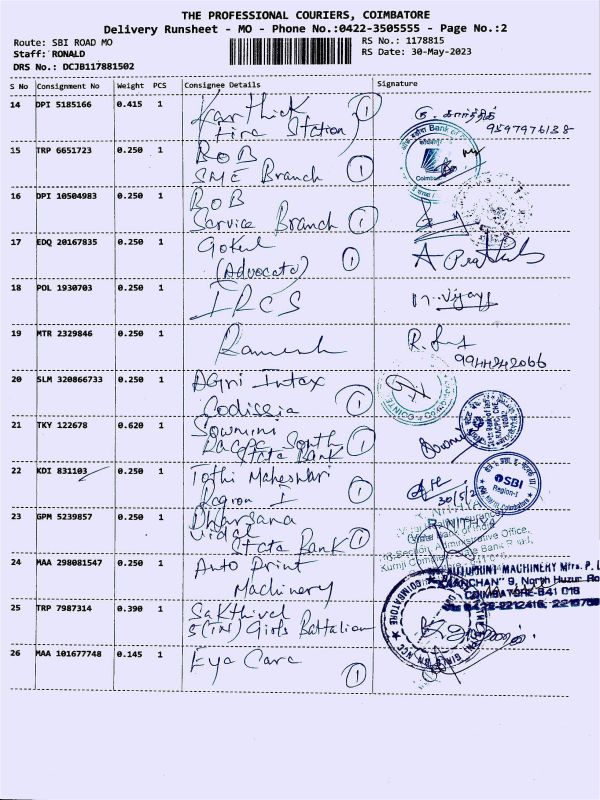 THE PROFESSIONAL COURIERS, COIMBATORE
Delivery Runsheet - MO - Phone No.:0422-3505555 - Page No.:2
Route: SBI ROAD MO
RS No.: 1178815
Staff: RONALD
RS Date: 30-May-2023
DRS No.: DCJB117881502
S No Consignment No Weight PCS Consignee Details Signature
14 DPI 5185166 0.415 1 Karthick 1
Fire Station
கு. கார்த்திக்
9597976138
15 TRP 6651723 0.250 1 BOB
SME Branch 1
16 DPI 10504983 0.250 1 BOB
Service Branch 1
17 EDQ 20167835 0.250 1 Gokul
(Advocate) 1
18 POL 1930703 0.250 1 IRCS
M. Vijay
19 MTR 2329846 0.250 1 Ramesh
9944242066
20 SLM 320866733 0.250 1 Agri Intex
Codissia 1
21 TKY 122678 0.620 1 Sowmini
RACPC South
State Bank 1
22 KDI 831103 0.250 1 Jothi Maheshwari
Region I 1
30/5/2
SBI
Region-1
23 GPM 5239857 0.250 1 Dharsana
State Bank 1
NITHYA
Administrative Office,
24 MAA 298081547 0.250 1 Auto Print
Machinery
AUTOPRINT MACHINERY Mfrs. P. L
"KANCHAN" 9, North Huzur Ro
COIMBATORE-641 018
25 TRP 7987314 0.390 1 Sakthivel
5(TN) Girls Battalion
26 MAA 101677748 0.145 1 Eye Care
1